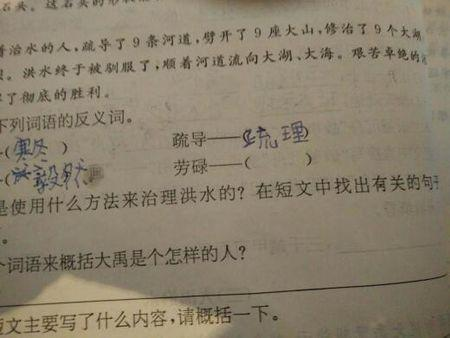 石头。这石头的形状
着治水的人，疏导了9条河道，劈开了9座大山，修治了9个大湖
。洪水终于被驯服了，顺着河道流向大湖、大海。艰苦卓绝的
了彻底的胜利。
下列词语的反义词。
(寒冬) 疏导——(疏理)
劳碌——( )
是使用什么方法来治理洪水的？在短文中找出有关的句子
。
个词语来概括大禹是个怎样的人？
短文主要写了什么内容，请概括一下。